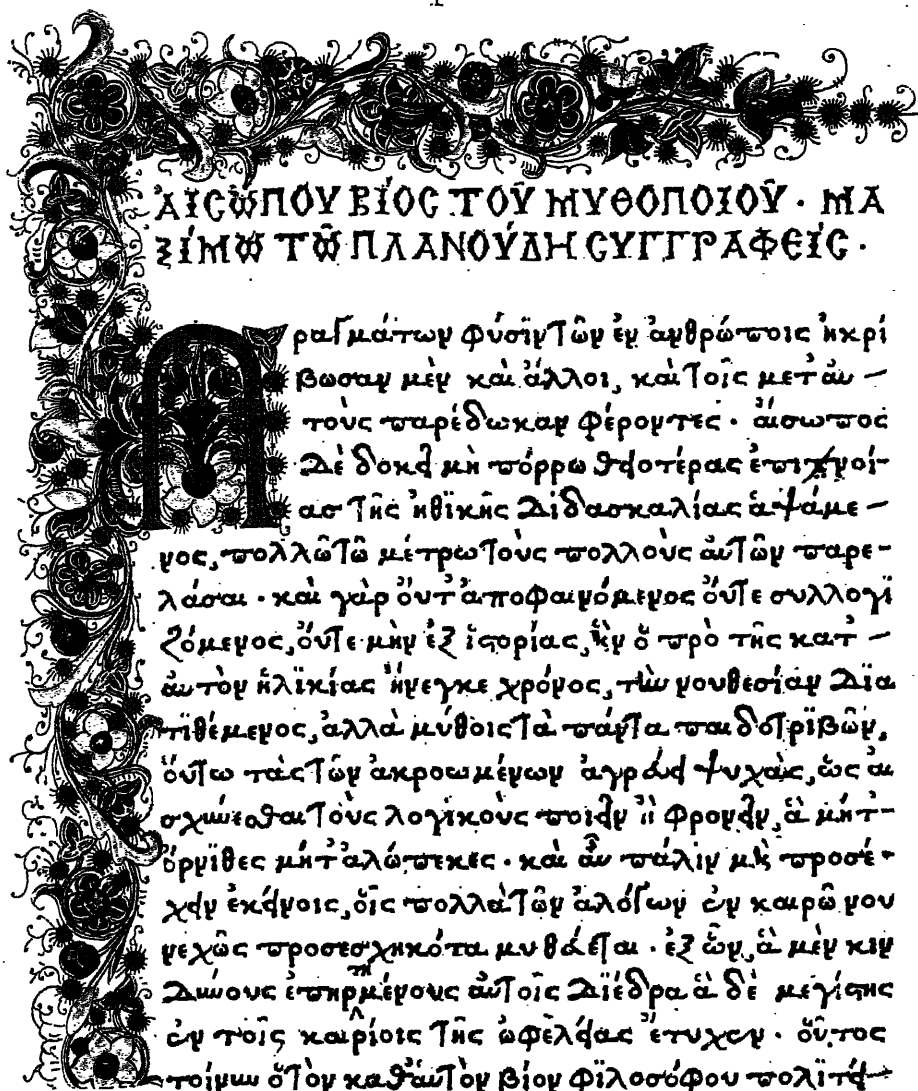 ἈΙΣΏΠΟΥ ΒΊΟΣ ΤΟΥ͂ ΜΥΘΟΠΟΙΟΥ͂ · ΜΑ
ΞΊΜΩ ΤΩ͂ ΠΛΑΝΟΎΔΗ ΣΥΓΓΡΑΦΕΊΣ ·
Πραγμάτων φύσιν τῶν ἐν ἀνθρώποις ἠκρί
βωσαν μὲν καὶ ἄλλοι, καὶ τοῖς μετ ἀυ –
τοὺς παρέδωκαν φέροντες · ἄισωπος
δὲ δοκεῖ μὴ πόρρω θειοτέρας ἐπιπνοί-
ας τῆς ἠθϊκῆς διδασκαλίας ἁψάμε –
νος, πολλῶ τῶ μέτρω τοὺς πολλοὺς ἀυτῶν παρε-
λάσαι · καὶ γὰρ ὄυτ ἀποφαινόμενος ὄυτε συλλογϊ
ζόμενος, ὄυτε μὴν ἐξ ἱστορίας, ἣν ὁ πρὸ τῆς κατ –
ἀυτὸν ἡλϊκίας ἤνεγκε χρόνος, τὴν νουθεσίαν δϊα
τϊθέμενος, ἀλλὰ μύθοις τὰ πάντα παιδοτρϊβῶν,
ὅυτω τὰς τῶν ἀκροωμένων ἀγρεύει ψυχὰς, ὡς ἀι
σχύνεσθαι τοὺς λογϊκοὺς ποιεῖν ἢ φρονεῖν, ἃ μήτ-
ὄρνϊθες μήτ ἀλώπεκες · καὶ ἂυ πάλϊν μὴ προσέ-
χειν ἐκείνοις, ὅις πολλὰ τῶν ἀλόγων ἐν καιρῶ νου
νεχῶς προσεσχηκότα μυθεύεται · ἐξ ὧν, ἃ μὲν κιν
δύνους ἐπηρτημένους ἀυτοῖς δϊέδρα ἃ δὲ μεγίστης
ἐν τοῖς καιρίοις τῆς ὠφελείας ἔτυχεν · ὅυτος
τοίνυν ὁ τὸν καθ ἁυτὸν βίον φϊλοσόφου πολϊτεί-